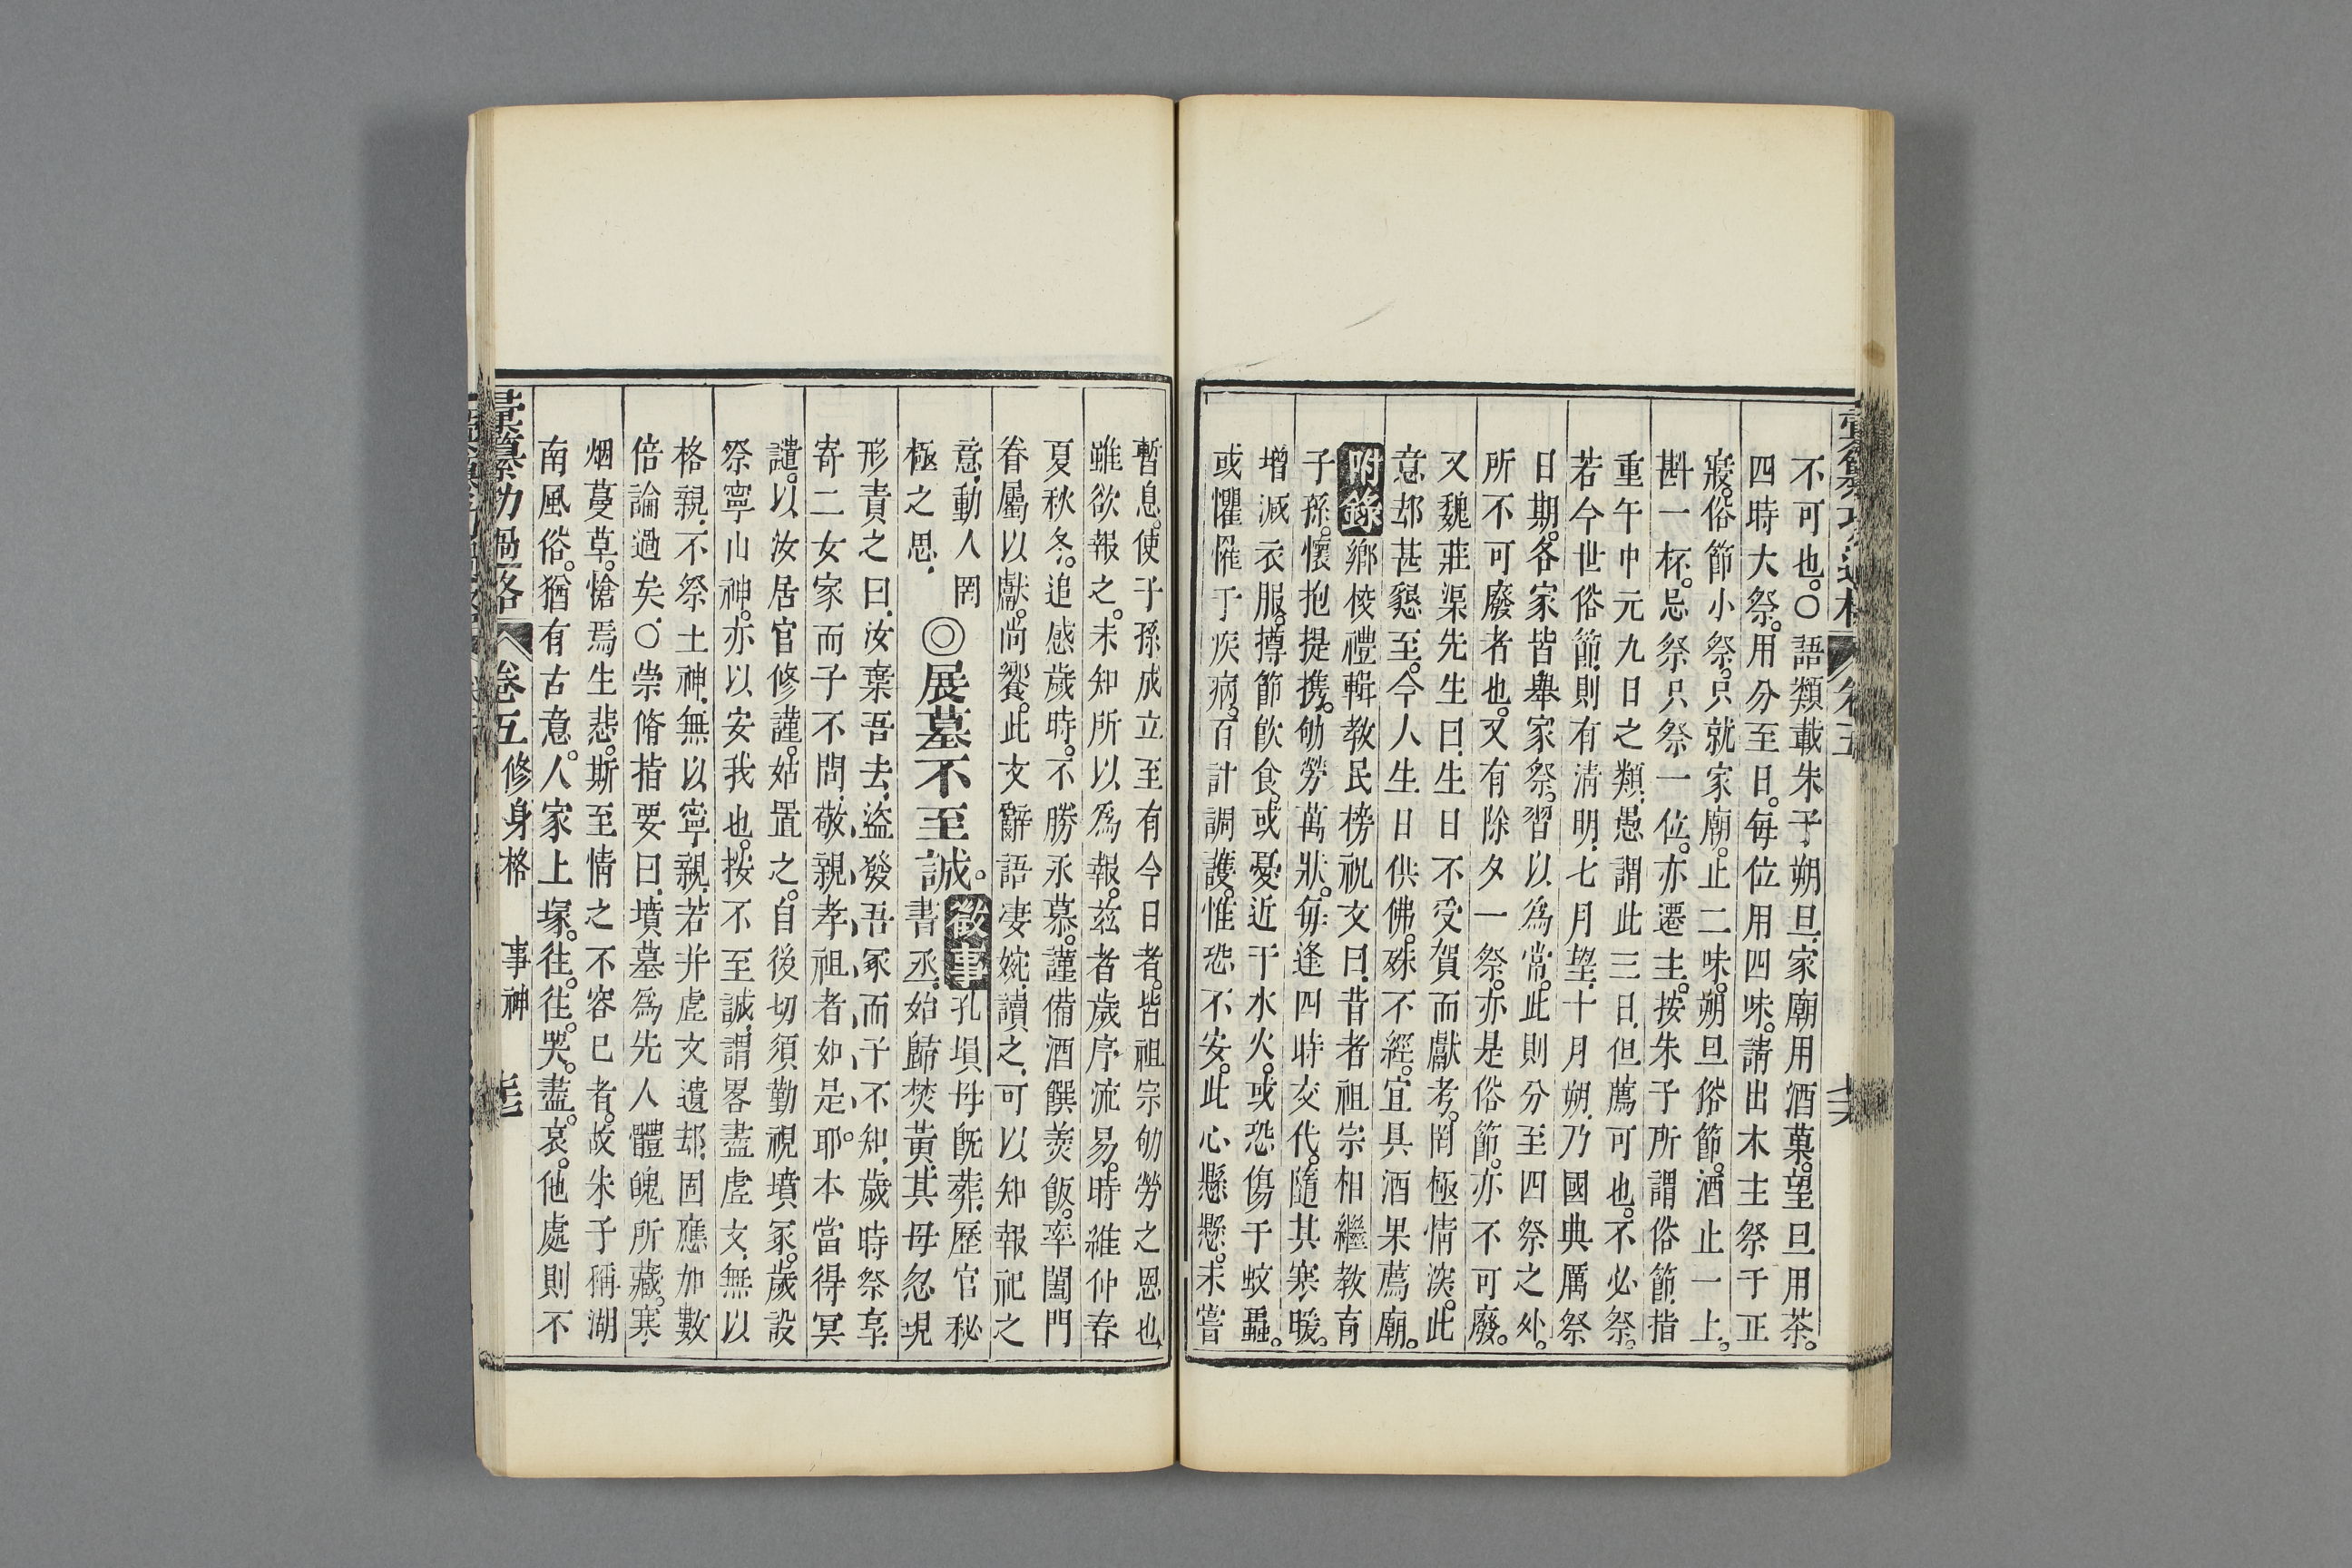 不可也。○語類載朱子朔旦家廟用酒菓。望旦用茶。
四時大祭。用分至日。每位用四味。請出木主祭于正
寢。俗節小祭。只就家廟。止二味。朔旦俗節。酒止一上。
斟一杯。忌祭只祭一位。亦遷主。按朱子所謂俗節。指
重午中元九日之類。愚謂此三日。但薦可也。不必祭。
若今世俗節。則有清明。七月望。十月朔。乃國典厲祭
日期。各家皆舉家祭。習以為常。此則分至四祭之外。
所不可廢者也。又有除夕一祭。亦是俗節。亦不可廢。
又魏莊渠先生曰。生日不受賀而獻考。罔極情深。此
意却甚懇至。今人生日供佛。殊不經。宜具酒果薦廟。
附錄鄉校禮輯教民榜祝文曰。昔者祖宗相繼教育
子孫。懷抱提携。劬勞萬狀。每逢四時交代。隨其寒暖。
增減衣服。撙節飲食。或憂近于水火。或恐傷于蚊蝨。
或懼罹于疾病。百計調護。惟恐不安。此心懸懸。未嘗
暫息。使子孫成立至有今日者。皆祖宗劬勞之恩也
雖欲報之。未知所以為報。茲者歲序流易。時維仲春
夏秋冬。追感歲時。不勝永慕。謹備酒饌羮飯。率闔門
眷屬以獻。尚饗。此文辭語凄婉。讀之可以知報祀之
意。動人罔
極之思。
◎展墓不至誠。
徵事孔塤母既葬。歷官秘
書丞。始歸焚黃。其母忽現
形責之曰。汝葉吾去。盜發吾冢而子不知。歲時祭享。
寄二女家而子不問。敬親孝祖者如是耶。本當得冥
譴。以汝居官修謹。姑置之。自後切須勤視墳冢。歲設
祭寧山神。亦以安我也。按不至誠。謂畧盡虛文。無以
格親。不祭土神。無以寧親。若并虛文遺却。固應加數
倍論過矣。○崇脩指要曰。墳墓為先人體魄所藏。寒
烟蔓草。愴焉生悲。斯至情之不容已者。故朱子稱湖
南風俗。猶有古意。人家上塚。往往哭盡哀。他處則不
彙纂功過格 卷五 修身格 事神